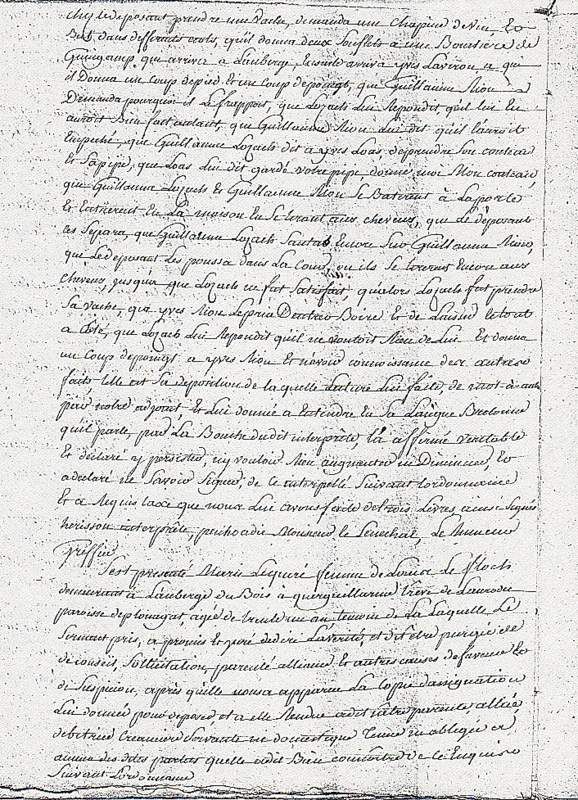 chez le deposant prendre une vache, demanda une Chapine de vin, Et
But dans differants endroits, qu'il donna deux soufflets a une Boursière de
Guingamp, que arrivez a L'auberge Ensuite arriva yves Laviron a qui
il Donna un coup de pied Et un coup de poingt, que Guillaume Rion a
Demanda pourquoi il Le frappoit, que Lozach Lui Repondit qu'il lui En
auroit Bien fait autant, que Guillaume Rion Lui dit qu'il L'auroit
Empeché, que Guillaume Lozach dit a yves Loas, de prendre son couteau
Et sa pipe, que Loas Lui dit gardé votre pipe donné moi Mon couteau,
que Guillaume Lozach Et Guillaume Rion se Batirent à La porte
Et Entrerent En La maison En se tirant aux cheveux, que Le deposant
Les separa, que Guillaume Lozach sauta Encore sur Guillaume Rion,
que Le deposant Les poussa dans La Cour, ou ils se tirerent Encore aux
cheveux, jusqu'a que Lozach en fut satisfait, qu'alors Lozach fut prendre
sa vache, que yves Rion Le pria D'entrer Boire Et de Laisser
a coté, que Lozach Lui Repondit qu'il ne vouloit Rien de Lui Et donna
un Coup de poingt a yves Rion Et n'avoir connoissance des autres
faits telle Est sa deposition de la quelle Lecture Lui faite de mot à mot
par notre adjoint Et Lui donnée a Entendre En sa Langue Bretonne
qu'il parle, par La Bouche dudit interprète, l'a affirmé veritable
Et declaré y persister, n'y vouloir Rien augmenter ni Diminuer, Et
a declaré ne savoir signer, de ce interpellé suivant L'ordonnance
Et a Requis taxe que nous Lui avons fixée de trois Livres
herisson interprète, Monsieur le senechal
Greffier
S'est presenté Marie Lequeré femme de Louis Le floch
demeurant a L'auberge du Bois à querguillerme trève de Lanrodec
paroisse de plouagat, agée de trente un an temoin de La Laquelle Le
serment pris, a promis Et juré de dire La verité, et dit être purgée de
de conseil, sollicitation, parenté alliance Et autres causes de faveur Et
de suspicion, après qu'elle nous a apparue La copie d'assignation
Lui donnée pour deposer, et a elle Rendue a dit n'être parente alliée
debitrice Creancière servante ne domestique tenue ni obligée a
aucune des dites parties quelle a dit Bien connoitre de ce Enquise
suivant L'ordonnance